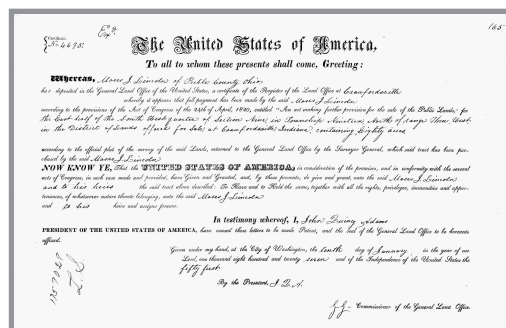 165
Certificate
No. 4695
Exd.
The United States of America,
To all to whom these presents shall come, Greeting:
Whereas, Moses J Lincoln of Preble County Ohio
has deposited in the General Land Office of the United States, a certificate of the Register of the Land Office at Crawfordsville
whereby it appears that full payment has been made by the said Moses J Lincoln
according to the provisions of the Act of Congress of the 24th of April, 1820, entitled "An act making further provision for the sale of the Public Lands," for
the East half of the South West quarter of Section Nine, in Township Nineteen North, of range Three, West,
in the District of Lands offered for Sale at Crawfordsville Indiana, containing Eighty acres
according to the official plat of the survey of the said Lands, returned to the General Land Office by the Surveyor General, which said tract has been pur-
chased by the said Moses J Lincoln
NOW KNOW YE, That the UNITED STATES OF AMERICA, in consideration of the premises, and in conformity with the several
acts of Congress, in such case made and provided, have Given and Granted, and, by these presents, do give and grant, unto the said Moses J Lincoln
and to his heirs the said tract above described: To Have and to Hold the same, together with all the rights, privileges, immunities, and appur-
tenances, of whatsoever nature thereto belonging, unto the said Moses J Lincoln
and to his heirs and assigns forever.
In testimony whereof, I, John Quincy Adams
PRESIDENT OF THE UNITED STATES OF AMERICA, have caused these letters to be made Patent, and the seal of the General Land Office to be hereunto
affixed.
Given under my hand, at the City of Washington, the tenth day of January in the year of our
Lord, one thousand eight hundred and twenty seven and of the Independence of the United States the
fifty first
By the President, J. Q. A.
G.G. Commissioner of the General Land Office.